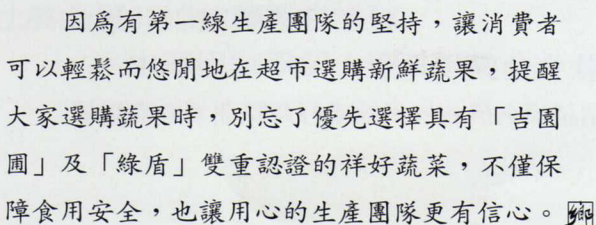 因為有第一線生產團隊的堅持，讓消費者
可以輕鬆而悠閒地在超市選購新鮮蔬果，提醒
大家選購蔬果時，別忘了優先選擇具有「吉園
圃」及「綠盾」雙重認證的祥好蔬菜，不僅保
障食用安全，也讓用心的生產團隊更有信心。鄉